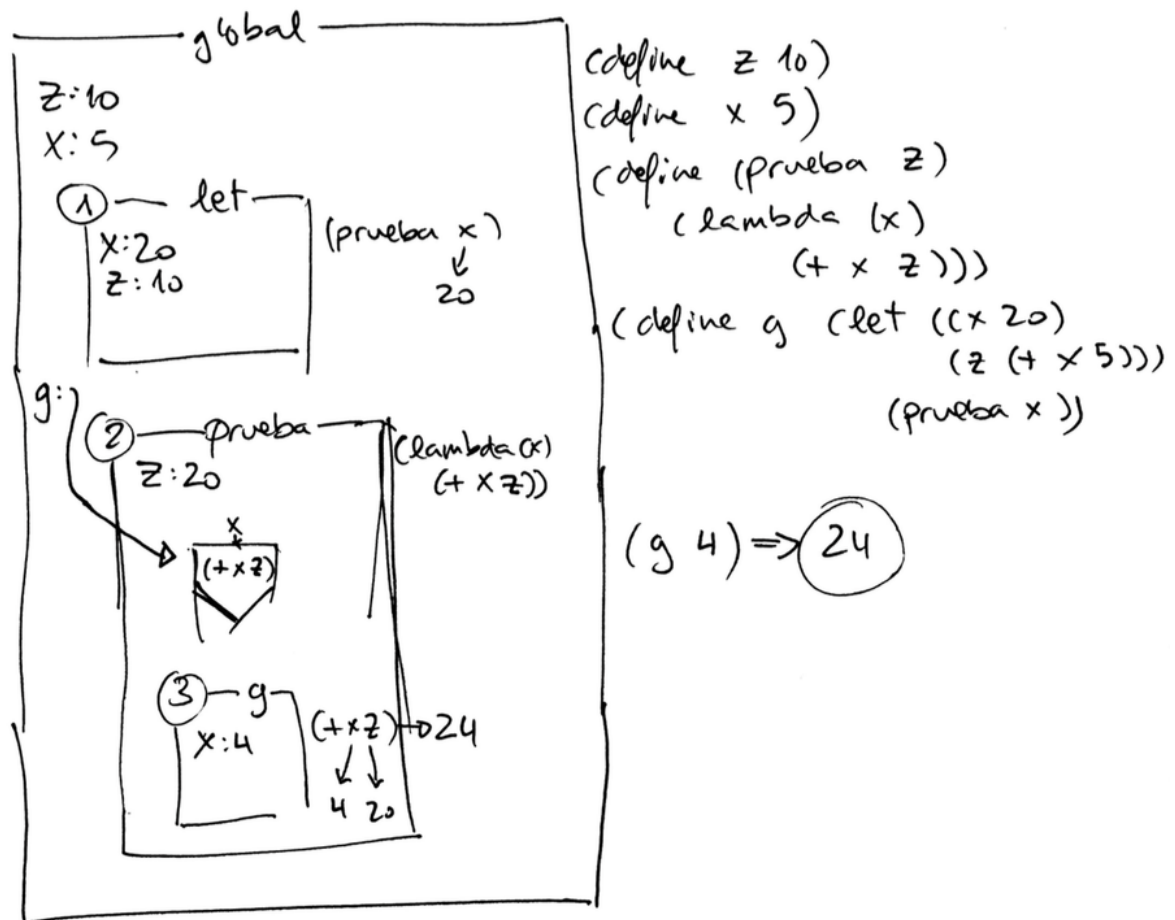 global
Z:10
X:5
1 let
X:20
Z:10
(prueba x)
20
g:
2 prueba
Z:20
(lambda (x)
(+ x z))
x
(+ x z)
3 g
X:4
(+ x z) → 24
4 20
(define z 10)
(define x 5)
(define (prueba z)
(lambda (x)
(+ x z)))
(define g (let ((x 20)
(z (+ x 5)))
(prueba x))
(g 4) ⇒ 24